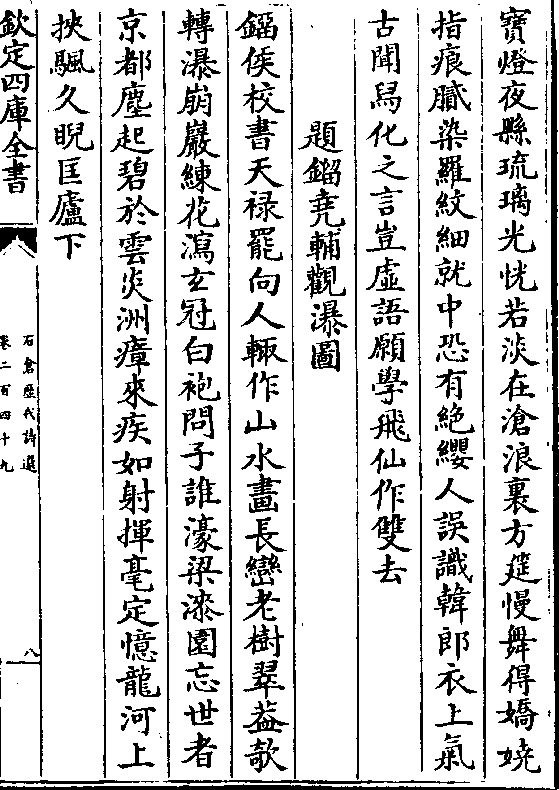 寶燈夜縣琉璃光恍若淡在滄浪裏方筵慢舞得嬌嬈
指痕膩染羅紋細就中恐有絶纓人誤識韓郎衣上氣
古聞舄化之言豈虛語願學飛仙作雙去
題鎦堯輔觀瀑圖
鎦侯校書天禄罷向人輙作山水畫長巒老樹翠葢欹
轉瀑崩巖練花瀉玄冠白袍問子誰濠梁漆園忘世者
京都塵起碧於雲炎洲瘴來疾如射揮毫定憶龍河上
挾颿久睨匡廬下
欽定四庫全書
石倉歷代詩選
卷二百四十九
八